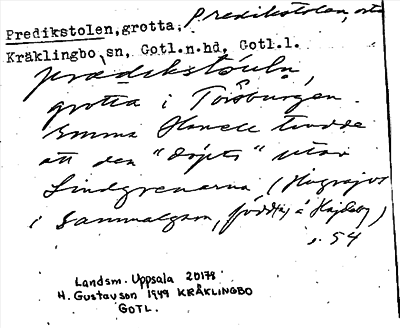 Predikstolen, grotta. Predikstolen, orts
Kräklingbo sn, Gotl.n.hd, Gotl.l.
prædikstouln,
grotta i Torsburgen.
Emma Havell trodde
att den "döpts" utav
Lindgrenarna (Hugrajvs
i Sammalgarn, född
s. 54
Landsm. Uppsala 20178
H. Gustavson 1949 KRÄKLINGBO
GOTL.